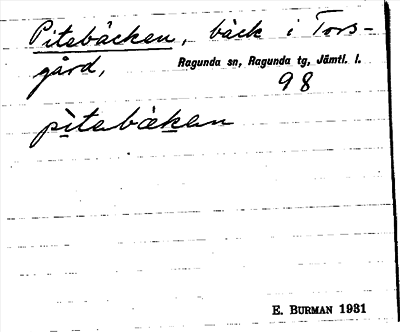 Pitebäcken, bäck i Tors-
gård, Ragunda sn, Ragunda tg, Jämtl. l.
98
pìtebäken
E. BURMAN 1931